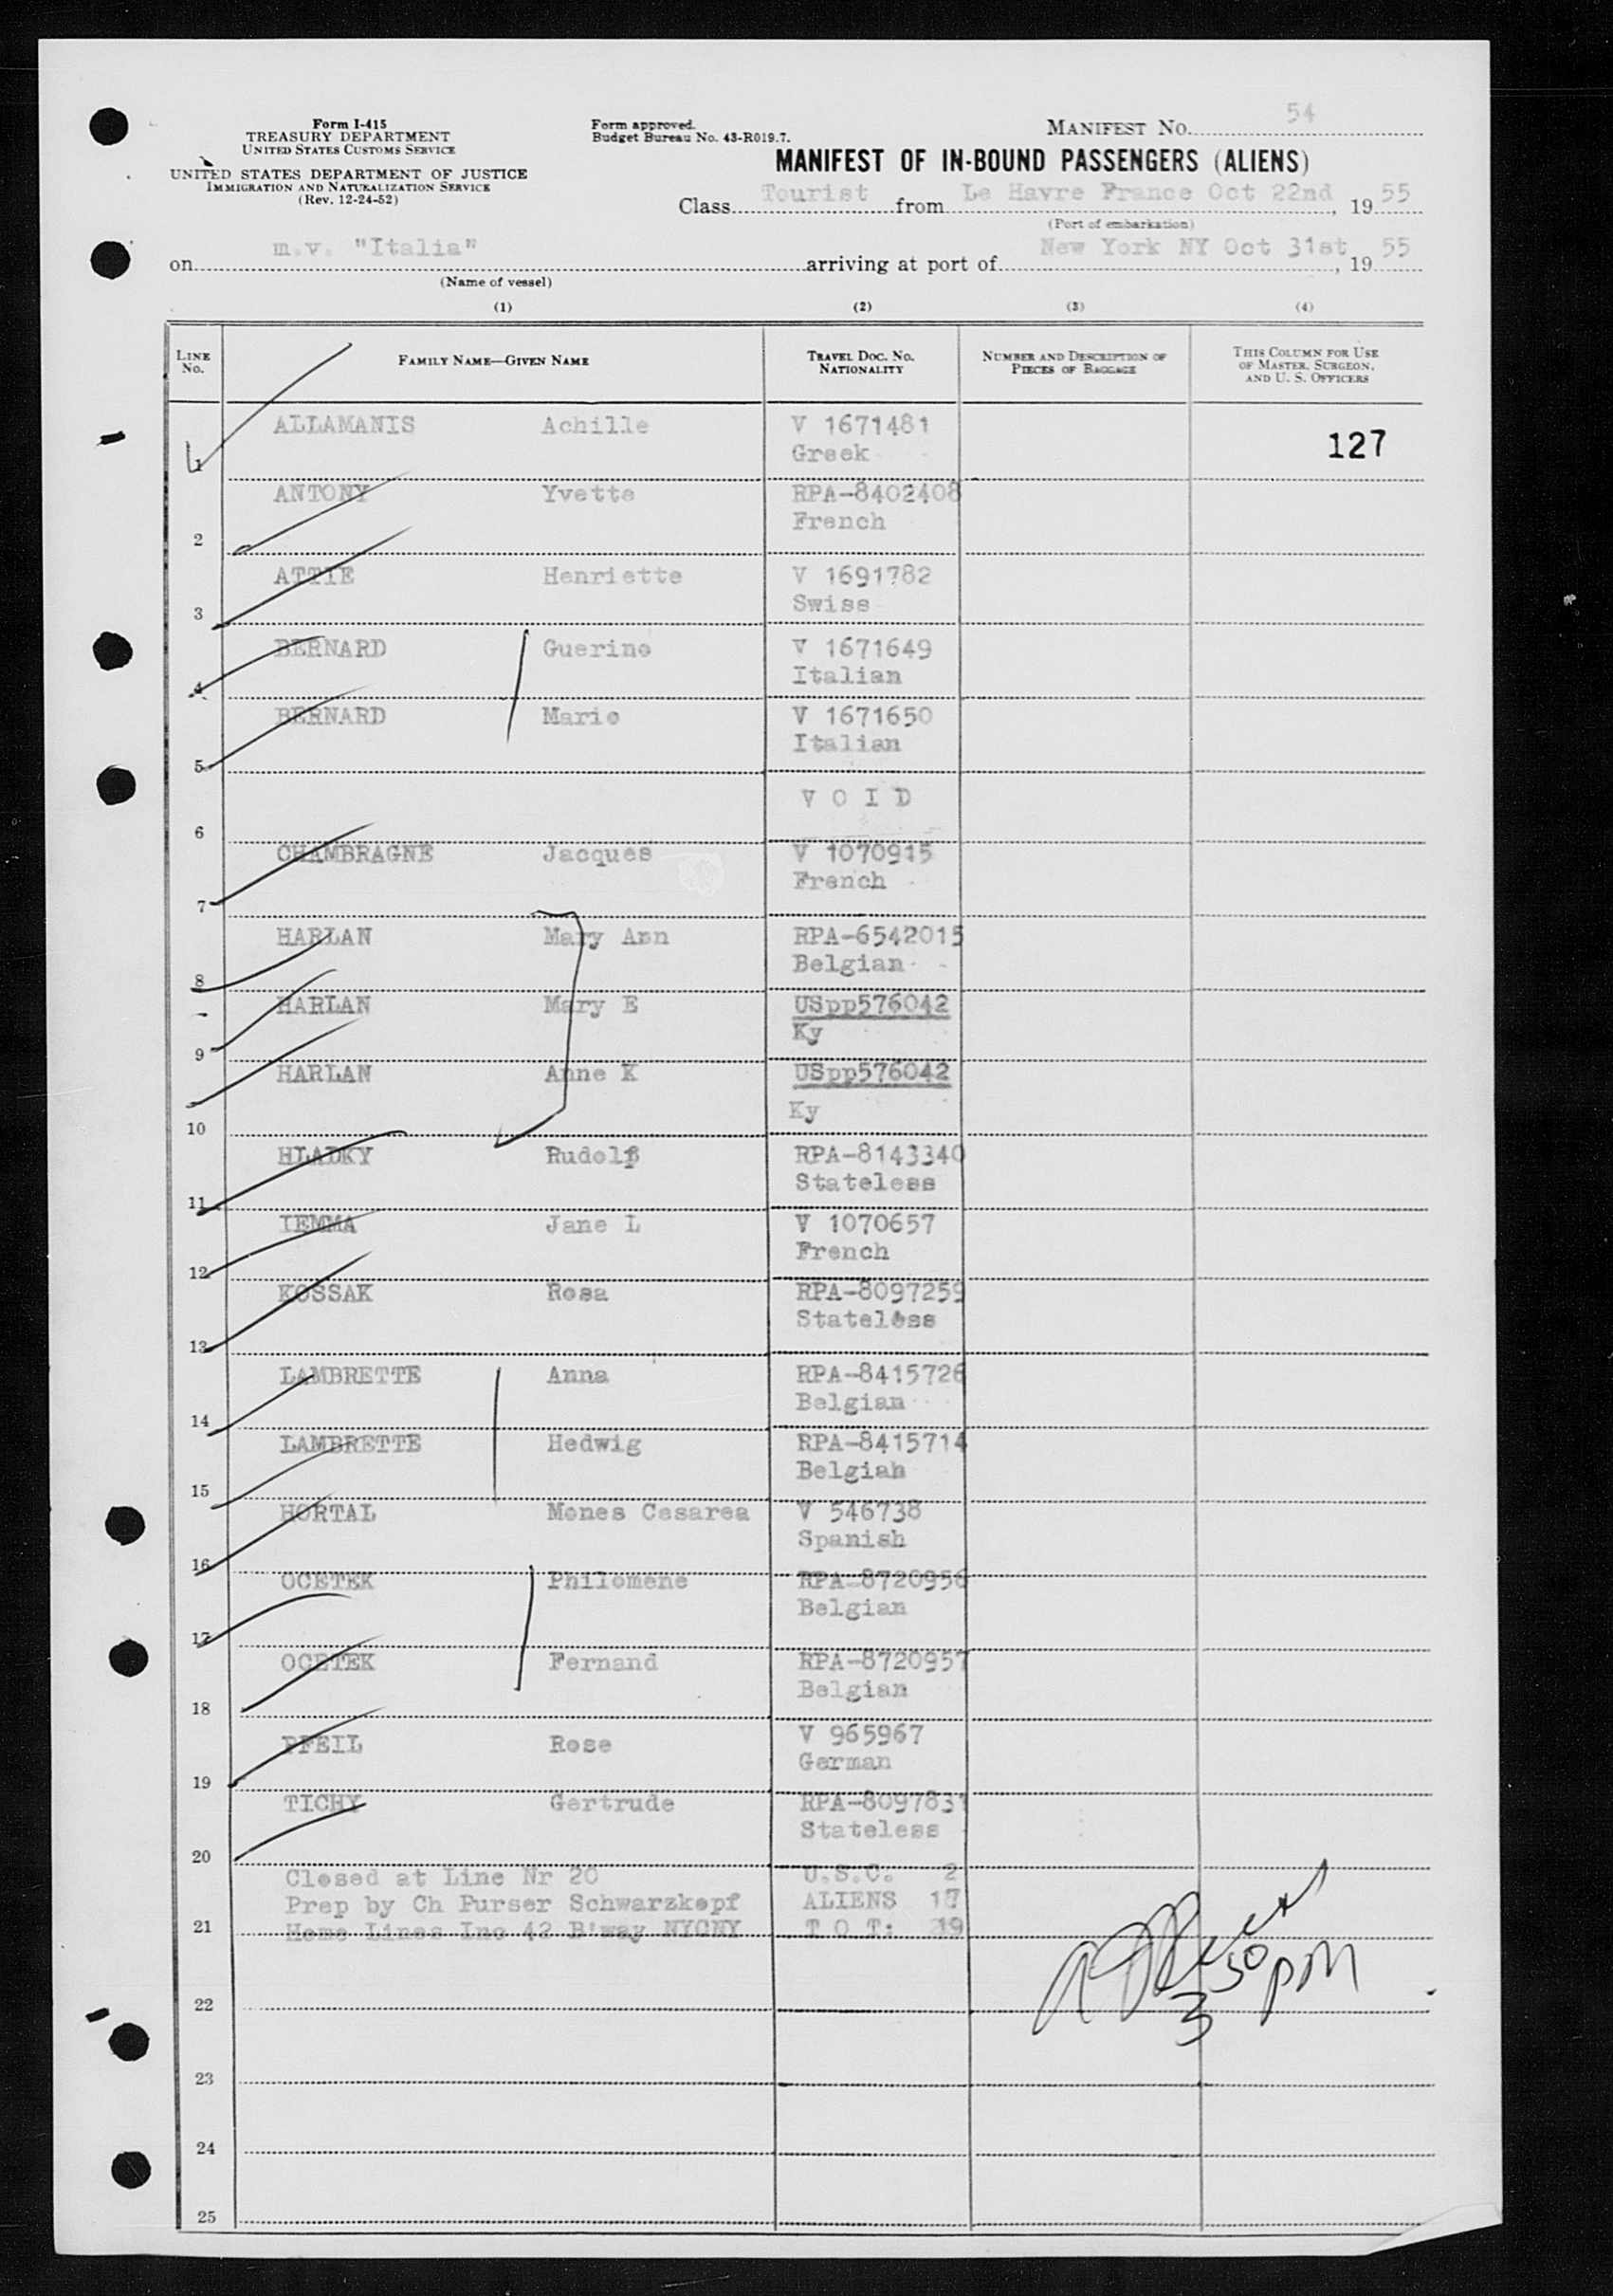 Form I-415
TREASURY DEPARTMENT
UNITED STATES CUSTOMS SERVICE
UNITED STATES DEPARTMENT OF JUSTICE
IMMIGRATION AND NATURALIZATION SERVICE
(Rev. 12-24-52)
Form approved.
Budget Bureau No. 43-R019.7.
MANIFEST NO. 54
MANIFEST OF IN-BOUND PASSENGERS (ALIENS)
Class Tourist from Le Havre France Oct 22nd, 19 55
(Port of embarkation)
on m.v. "Italia" arriving at port of New York NY Oct 31st, 19 55
(Name of vessel)
(1) (2) (3) (4)
LINE No. FAMILY NAME—GIVEN NAME TRAVEL DOC. NO. NATIONALITY NUMBER AND DESCRIPTION OF PIECES OF BAGGAGE THIS COLUMN FOR USE OF MASTER, SURGEON, AND U. S. OFFICERS
1 ALLAMANIS Achille V 1671481
Greek 127
2 ANTONY Yvette RPA-8402408
French
3 ATTIE Henriette V 1691782
Swiss
4 BERNARD Guerino V 1671649
Italian
5 BERNARD Marie V 1671650
Italian
6 V O I D
7 CHAMBRAGNE Jacques V 1070915
French
8 HARLAN Mary Ann RPA-6542015
Belgian
9 HARLAN Mary E USpp576042
Ky
10 HARLAN Anne K USpp576042
Ky
11 HLADKY Rudolf RPA-8143340
Stateless
12 IEMMA Jane L V 1070657
French
13 KOSSAK Rosa RPA-8097259
Stateless
14 LAMBRETTE Anna RPA-8415726
Belgian
15 LAMBRETTE Hedwig RPA-8415714
Belgian
16 HORTAL Mones Cesarea V 546738
Spanish
17 OCETEK Philomene RPA-8720956
Belgian
18 OCETEK Fernand RPA-8720957
Belgian
19 PFEIL Rose V 965967
German
20 TICHY Gertrude RPA-8097831
Stateless
Closed at Line Nr 20 U.S.C. 2
Prep by Ch Purser Schwarzkopf ALIENS 17
21 Home Lines Inc 42 B'way NYCNY T O T: 19
3 50 PM
22
23
24
25